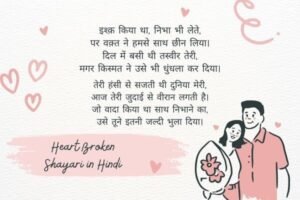 इश्क़ किया था, निभा भी लेते,
पर वक़्त ने हमसे साथ छीन लिया।
दिल में बसी थी तस्वीर तेरी,
मगर किस्मत ने उसे भी धुंधला कर दिया।
तेरी हंसी से सजती थी दुनिया मेरी,
आज तेरी जुदाई से वीरान लगती है।
जो वादा किया था साथ निभाने का,
उसे तूने इतनी जल्दी भुला दिया।
Heart Broken
Shayari in Hindi